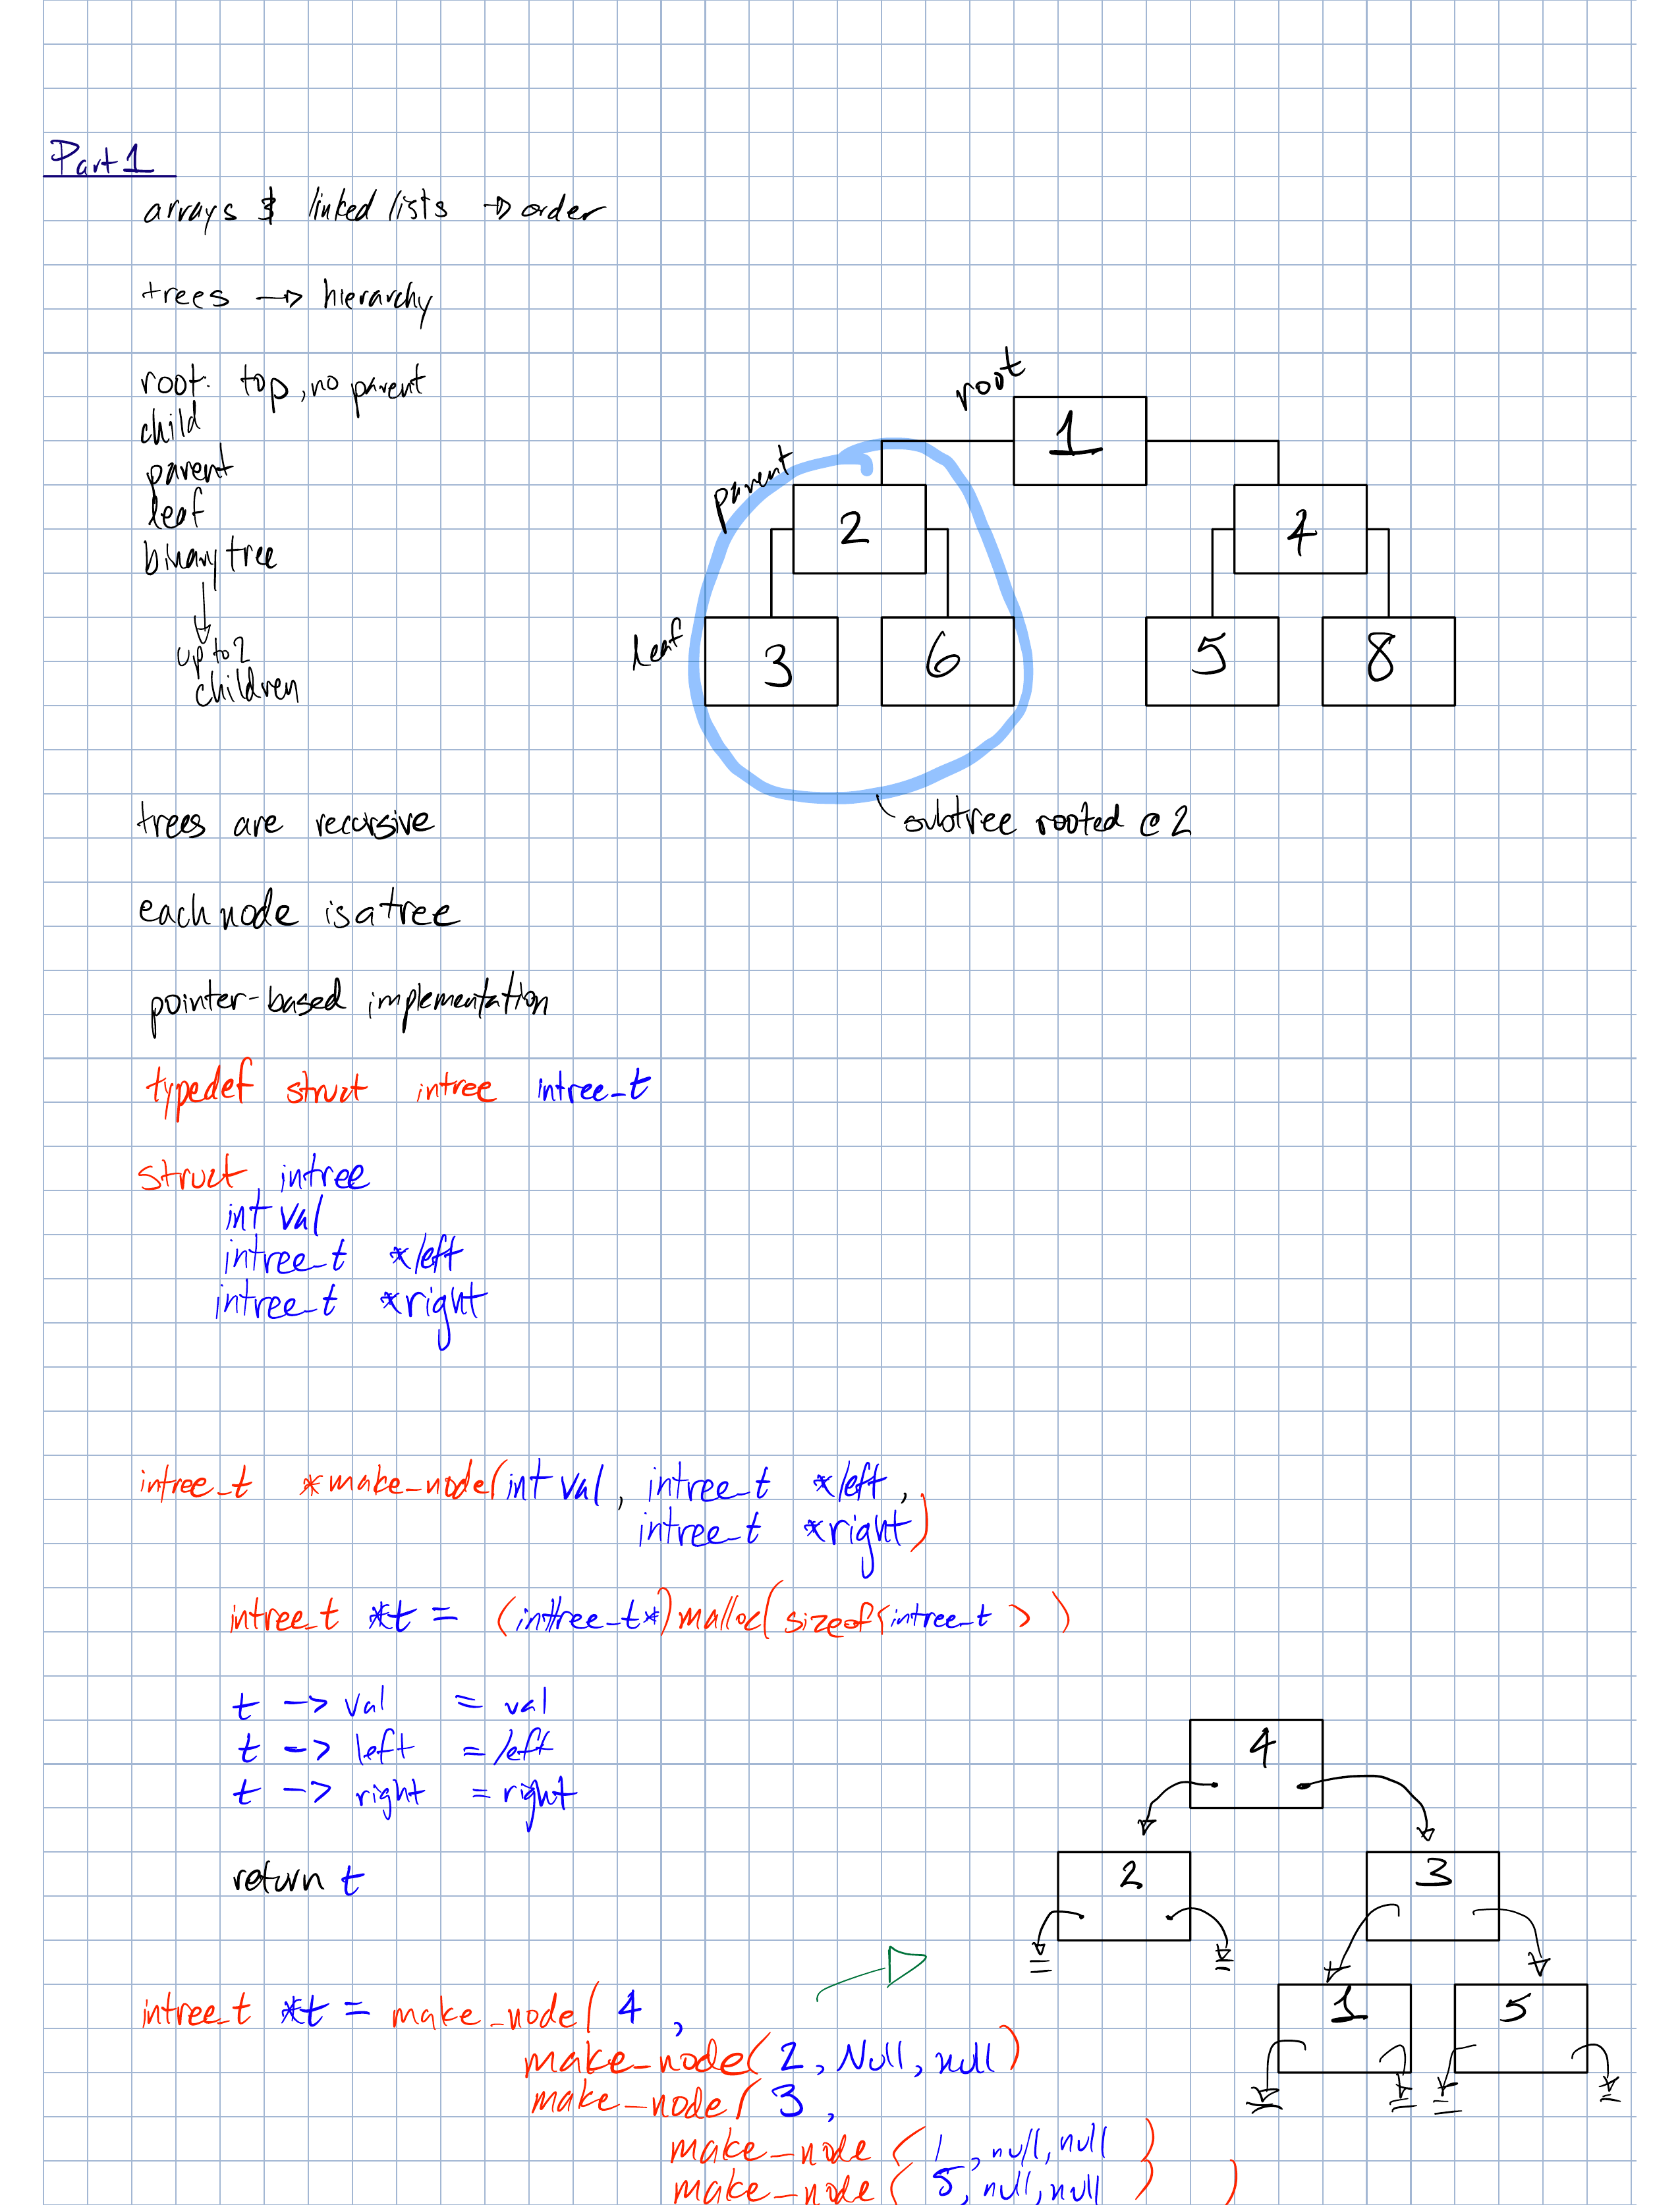 Part 1
arrays & linked lists → order
trees → hierarchy
root: top, no parent
child
parent
leaf
binary tree
↓
up to 2
children
root
1
parent
2
4
leaf
3
6
5
8
subtree rooted @ 2
trees are recursive
each node is a tree
pointer-based implementation
typedef struct intree intree_t
struct intree
int val
intree_t *left
intree_t *right
intree_t *make_node(int val, intree_t *left,
intree_t *right)
intree_t *t = (inttree_t*)malloc(sizeof(intree_t))
t -> val = val
t -> left = left
t -> right = right
return t
4
2
3
1
5
intree_t *t = make_node( 4 ,
make_node( 2, Null, null)
make_node( 3 ,
make_node ( 1, null, null )
make_node ( 5, null, null ) )